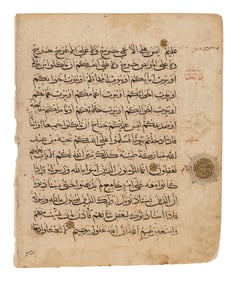 عليم ليس على الاعمى حرج ولا على الاعرج حرج
ولا على المريض حرج ولا على انفسكم ان تاكلوا من
بيوتكم او بيوت ابائكم او بيوت امهاتكم او بيوت اخوانكم
او بيوت اخواتكم او بيوت اعمامكم او بيوت عماتكم
او بيوت اخوالكم او بيوت خالاتكم او ما ملكتم مفاتحه
او صديقكم ليس عليكم جناح ان تاكلوا جميعا او اشتاتا
فاذا دخلتم بيوتا فسلموا على انفسكم تحية من عند
الله مباركة طيبة كذلك يبين الله لكم الايات لعلكم
تعقلون انما المؤمنون الذين امنوا بالله ورسوله واذا
كانوا معه على امر جامع لم يذهبوا حتى يستاذنوه ان
الذين يستاذنونك اولئك الذين يؤمنون بالله ورسوله
فاذا استاذنوك لبعض شانهم فاذن لمن شئت منهم
واستغفر لهم الله ان الله غفور رحيم لا تجعلوا